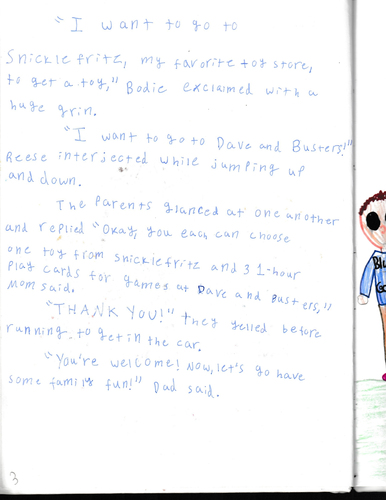 "I want to go to
Snicklefritz, my favorite toy store,
to get a toy," Bodie exclaimed with a
huge grin.
"I want to go to Dave and Busters!"
Reese interjected while jumping up
and down.
The Parents glanced at one another
and replied "Okay, you each can choose
one toy from snicklefritz and 3 1-hour
Play cards for games at Dave and Busters,"
Mom said.
"THANK YOU!" they yelled before
running to get in the car.
"You're welcome! Now, let's go have
some family fun!" Dad said.
3